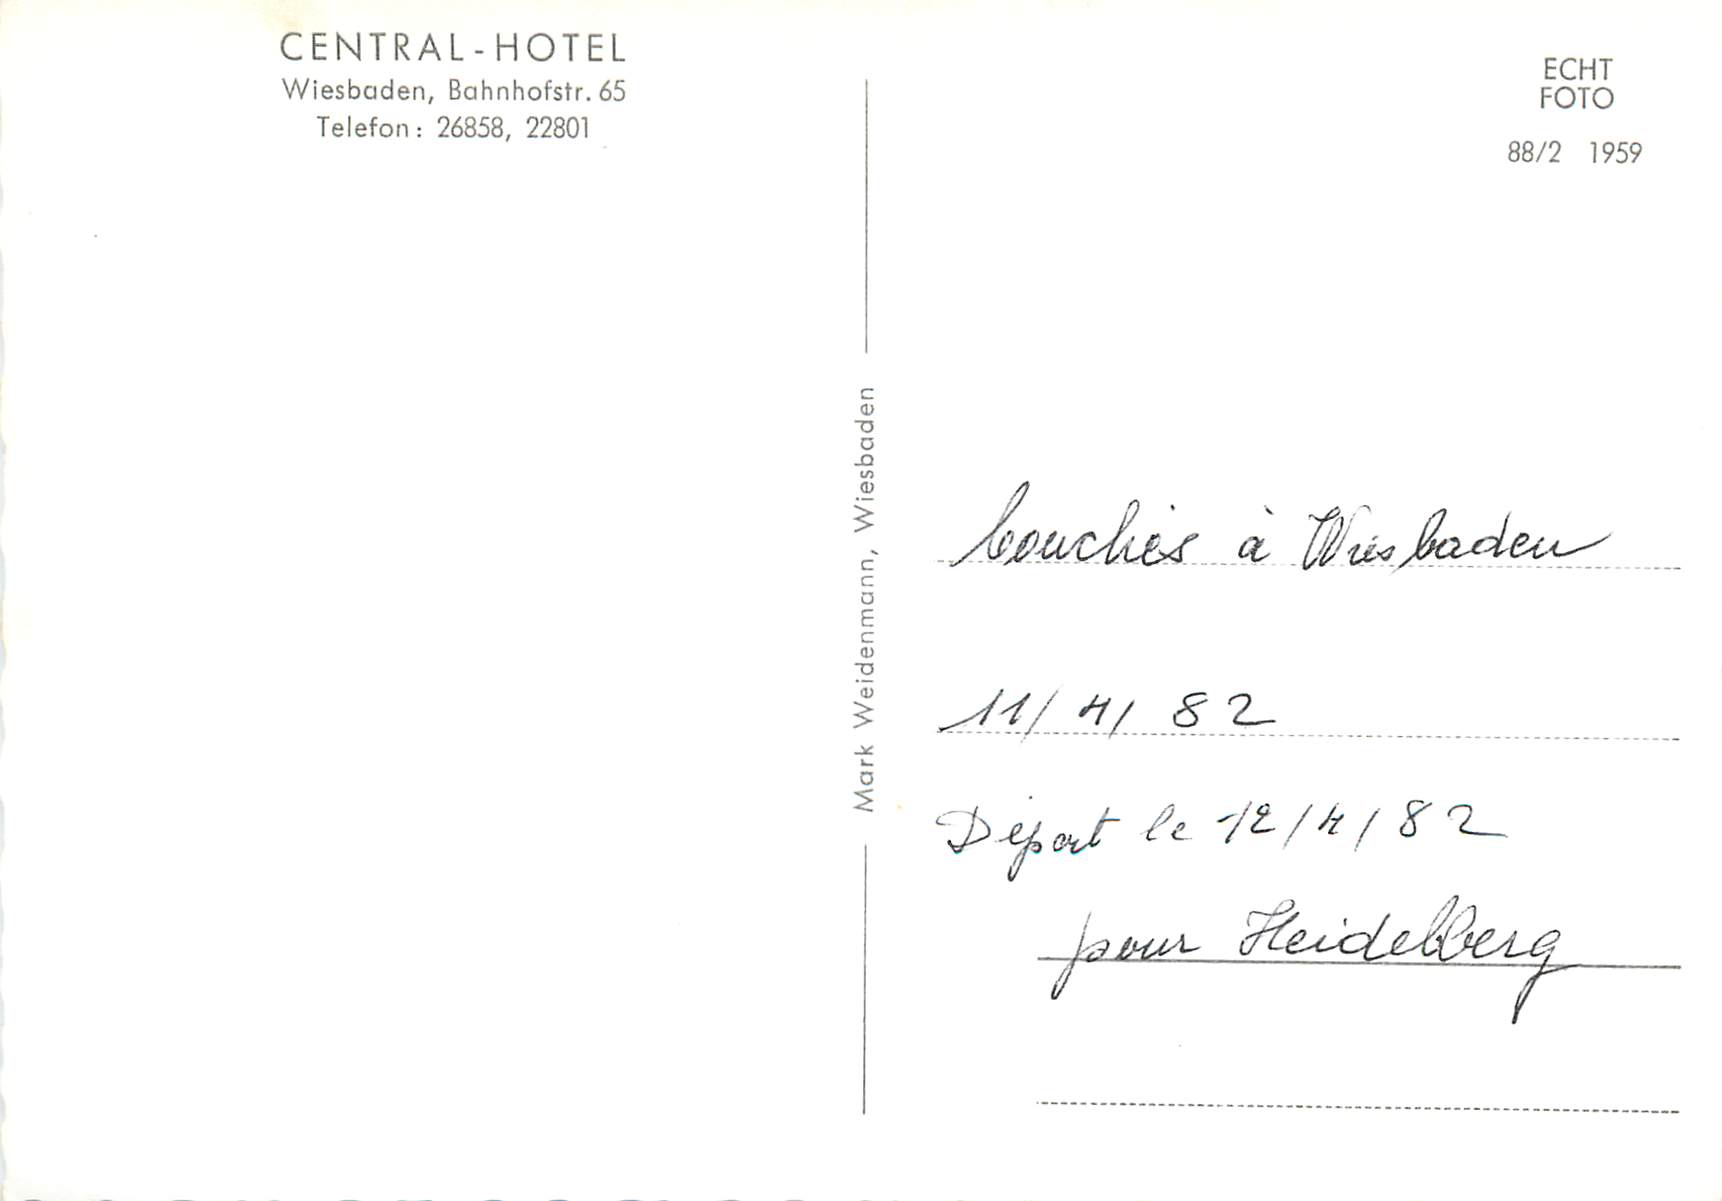 CENTRAL-HOTEL
Wiesbaden, Bahnhofstr. 65
Telefon: 26858, 22801
ECHT
FOTO
88/2 1959
Mark Weidenmann, Wiesbaden
Couchés à Wiesbaden
11/4/82
Départ le 12/4/82
pour Heidelberg